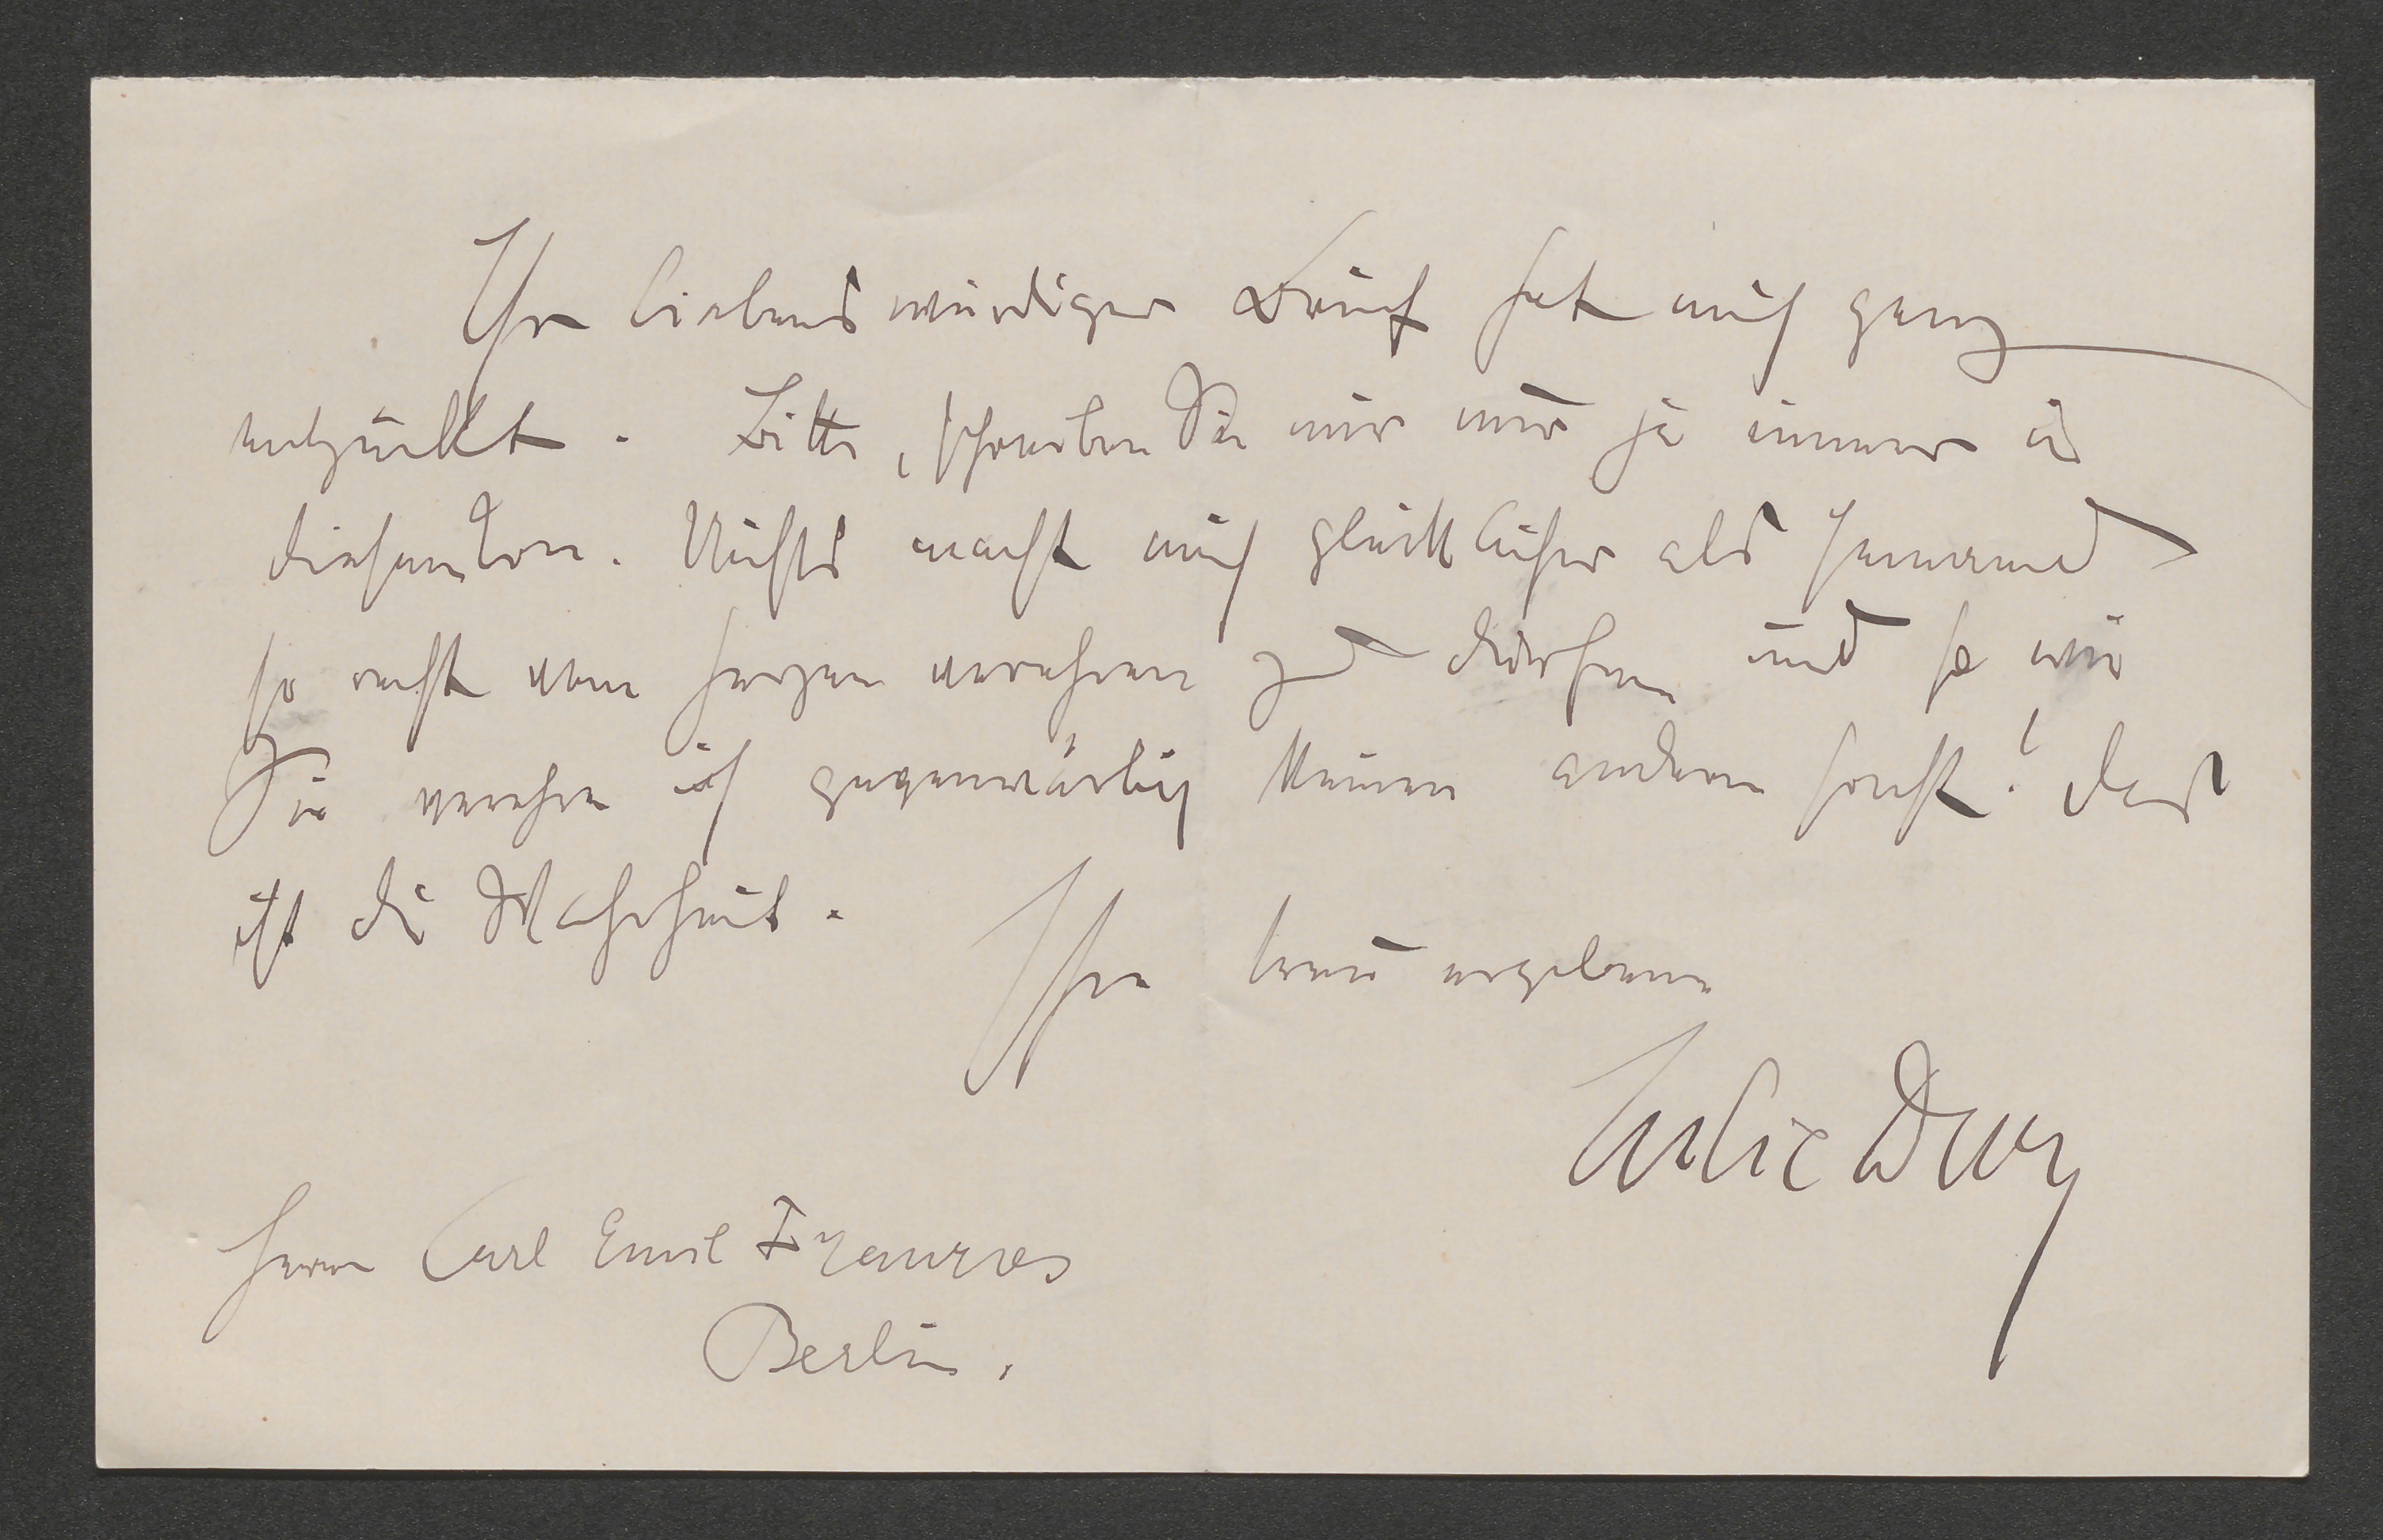 Ihr liebenswürdiger Brief hat mich ganz
entzückt. Bitte, schreiben Sie mir nur ja immer in
diesem Ton. Nichts macht mich glücklicher als Jemand
so recht von Herzen verehren zu dürfen und so wie
Sie verehre ich gegenwärtig keinen andern sonst! Das
ist die Wahrheit.
Ihre treu ergebene
Julie Dery
Herrn Carl Emil Franzos
Berlin.